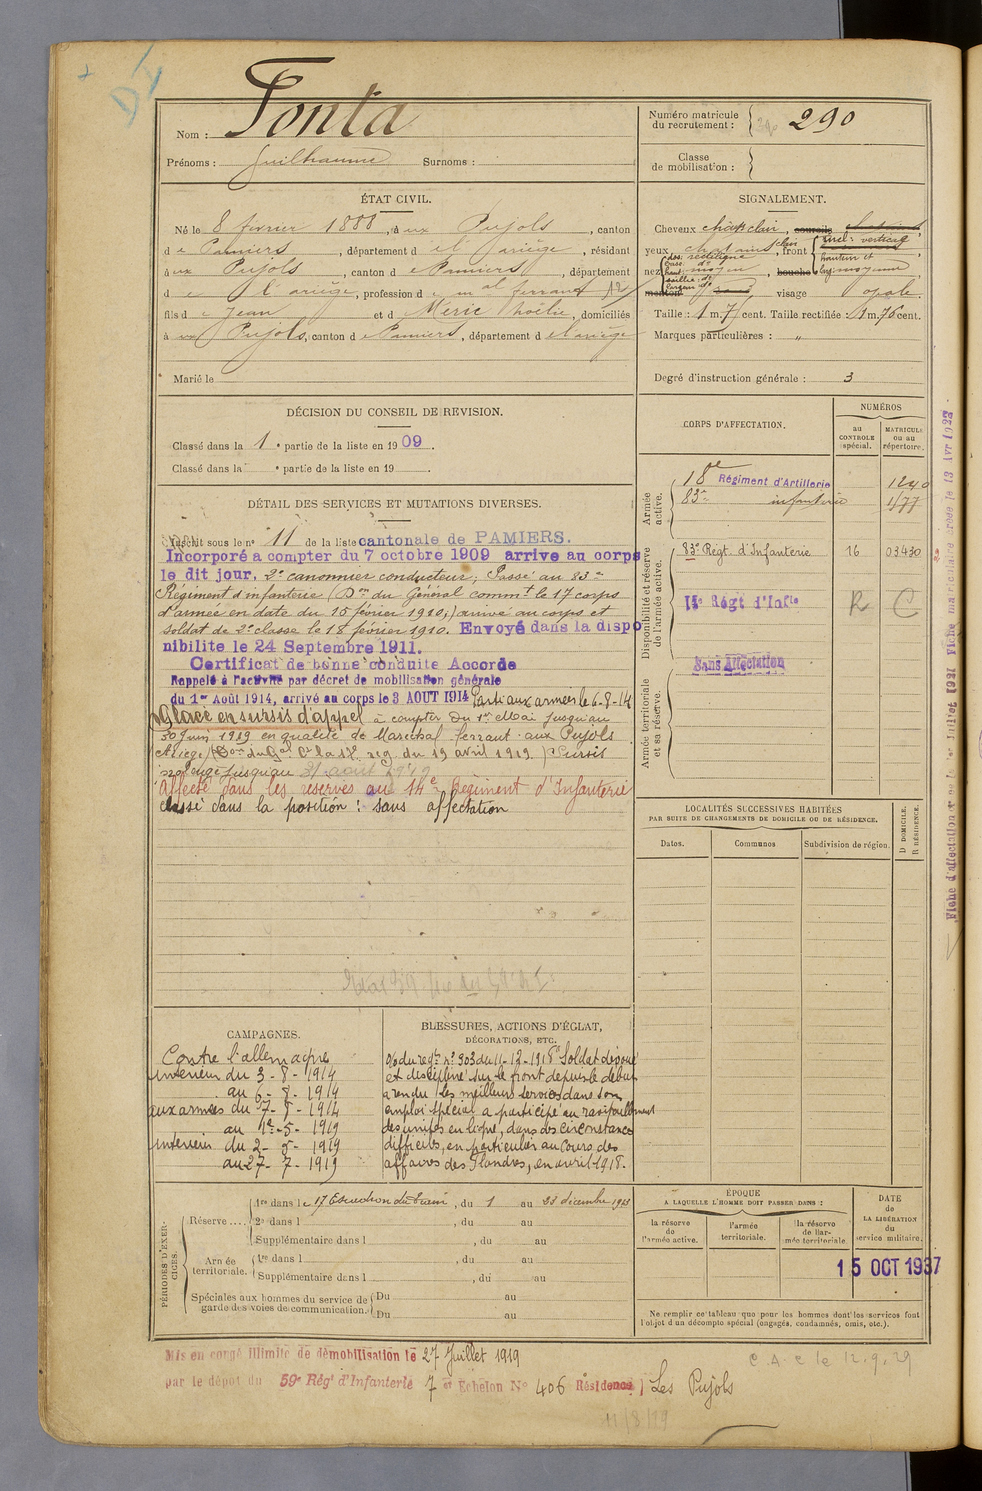 Nom : Fonta
Prénoms : Guilhaume Surnoms :
Numéro matricule du recrutement : 290
Classe de mobilisation :
ÉTAT CIVIL.
Né le 8 février 1888, à ux Pujols, canton
d e Pamiers, département d e l'ariège, résidant
à ux Pujols, canton d e Pamiers, département
d e l'ariège, profession d e mal ferrant
fils d e Jean et d e Méric Noélie, domiciliés
à ux Pujols, canton d e Pamiers, département d e l'ariège
Marié le
SIGNALEMENT.
Cheveux chat clair, sourcils chatains
yeux chatains clair, front incl: vertical
hauteur et
larg moyenne
nez dos: rectiligne
base: do
haut: moyen, bouche
saillie: do
largeur: do
menton rond visage ovale.
Taille : 1 m. 7 cent. Taille rectifiée : 1 m. 76 cent.
Marques particulières : "
Degré d'instruction générale : 3
DÉCISION DU CONSEIL DE REVISION.
Classé dans la 1e partie de la liste en 1909.
Classé dans la e partie de la liste en 19 .
CORPS D'AFFECTATION.
NUMÉROS
au CONTROLE spécial.
MATRICULE ou au répertoire.
Armée active.
18e Régiment d'Artillerie 1240
83e infanterie 1177
Disponibilité et réserve de l'armée active.
83e Régt. d'Infanterie 16 03430
14e Régt d'Infie R C
Armée territoriale et sa réserve.
Sans Affectation
DÉTAIL DES SERVICES ET MUTATIONS DIVERSES.
Inscrit sous le no 11 de la liste cantonale de PAMIERS.
Incorporé a compter du 7 octobre 1909 arrive au corps
le dit jour, 2e canonnier conducteur; Passé au 83e
Régiment d'infanterie (Don du Général commt le 17 corps
d'armée en date du 15 février 1910;) arrivé au corps et
soldat de 2e classe le 18 février 1910. Envoyé dans la dispo
nibilite le 24 Septembre 1911.
Certificat de bonne conduite Accorde
Rappelé à l'activité par décret de mobilisation générale
du 1er Août 1914, arrivé au corps le 3 AOUT 1914 Parti aux armées le 6-8-14
Placé en sursis d'appel à compter du 1er Mai jusqu'au
30 juin 1919 en qualité de Maréchal ferrant aux Pujols
(Ariège) (Don du Gal Ct la 17e rég. du 19 avril 1919.) Sursis
prolongé jusqu'au 31 août 1919
Affecté dans les réserves au 14e Régiment d'Infanterie
classé dans la position: sans affectation
LOCALITÉS SUCCESSIVES HABITÉES
PAR SUITE DE CHANGEMENTS DE DOMICILE OU DE RÉSIDENCE.
Dates. Communes Subdivision de région. D DOMICILE. R RÉSIDENCE.
CAMPAGNES.
Contre l'allemagne
interieur du 3-8-1914
au 6-8-1914
aux armées du 7-8-1914
au 1e-5-1919
interieur du 2-5-1919
au 27-7-1919
BLESSURES, ACTIONS D'ÉCLAT,
DÉCORATIONS, ETC.
o/o du regt no 303 du 11-12-1918 "Soldat dévoué
et discipliné sur le front depuis le début
a rendu les meilleurs services dans son
emploi spécial a participé au ravitaillement
des unités en ligne, dans des circonstances
difficiles, en particulier au cours des
affaires des Flandres, en avril 1918.
PÉRIODES D'EXERCICES.
Réserve .... 1re dans le 17 Escadron du train, du 1 au 23 décembre 1913
2e dans l , du au
Supplémentaire dans l , du au
Armée territoriale. 1re dans l , du au
Supplémentaire dans l , du au
Spéciales aux hommes du service de garde des voies de communication. Du au
Du au
ÉPOQUE
A LAQUELLE L'HOMME DOIT PASSER DANS :
la réserve de l'armée active.
l'armée territoriale.
la réserve de l'armée territoriale.
DATE de LA LIBÉRATION du service militaire.
15 OCT 1937
Ne remplir ce tableau que pour les hommes dont les services font
l'objet d'un décompte spécial (engagés, condamnés, omis, etc.).
Mis en congé illimité de démobilisation le 27 Juillet 1919
par le dépot du 59e Régt d'Infanterie 7e Echelon No 406 Résidence) Les Pujols
C.A.C le 12.9.29
11/8/29